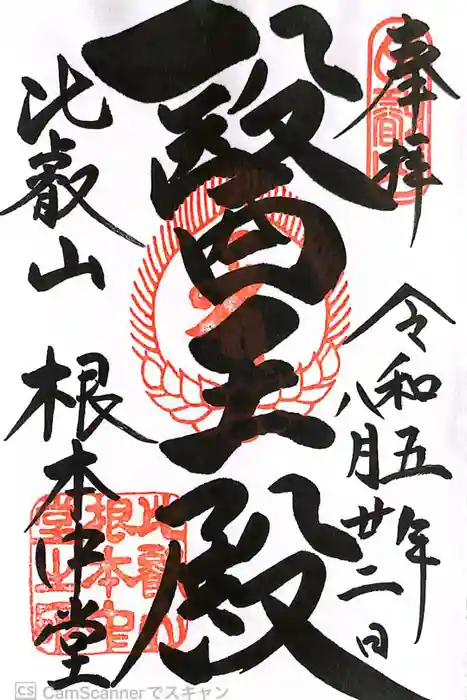 奉拝
令和五年
八月廿二日
醫王殿
比叡山 根本中堂
比叡山
根本中
堂之印
CS CamScannerでスキャン